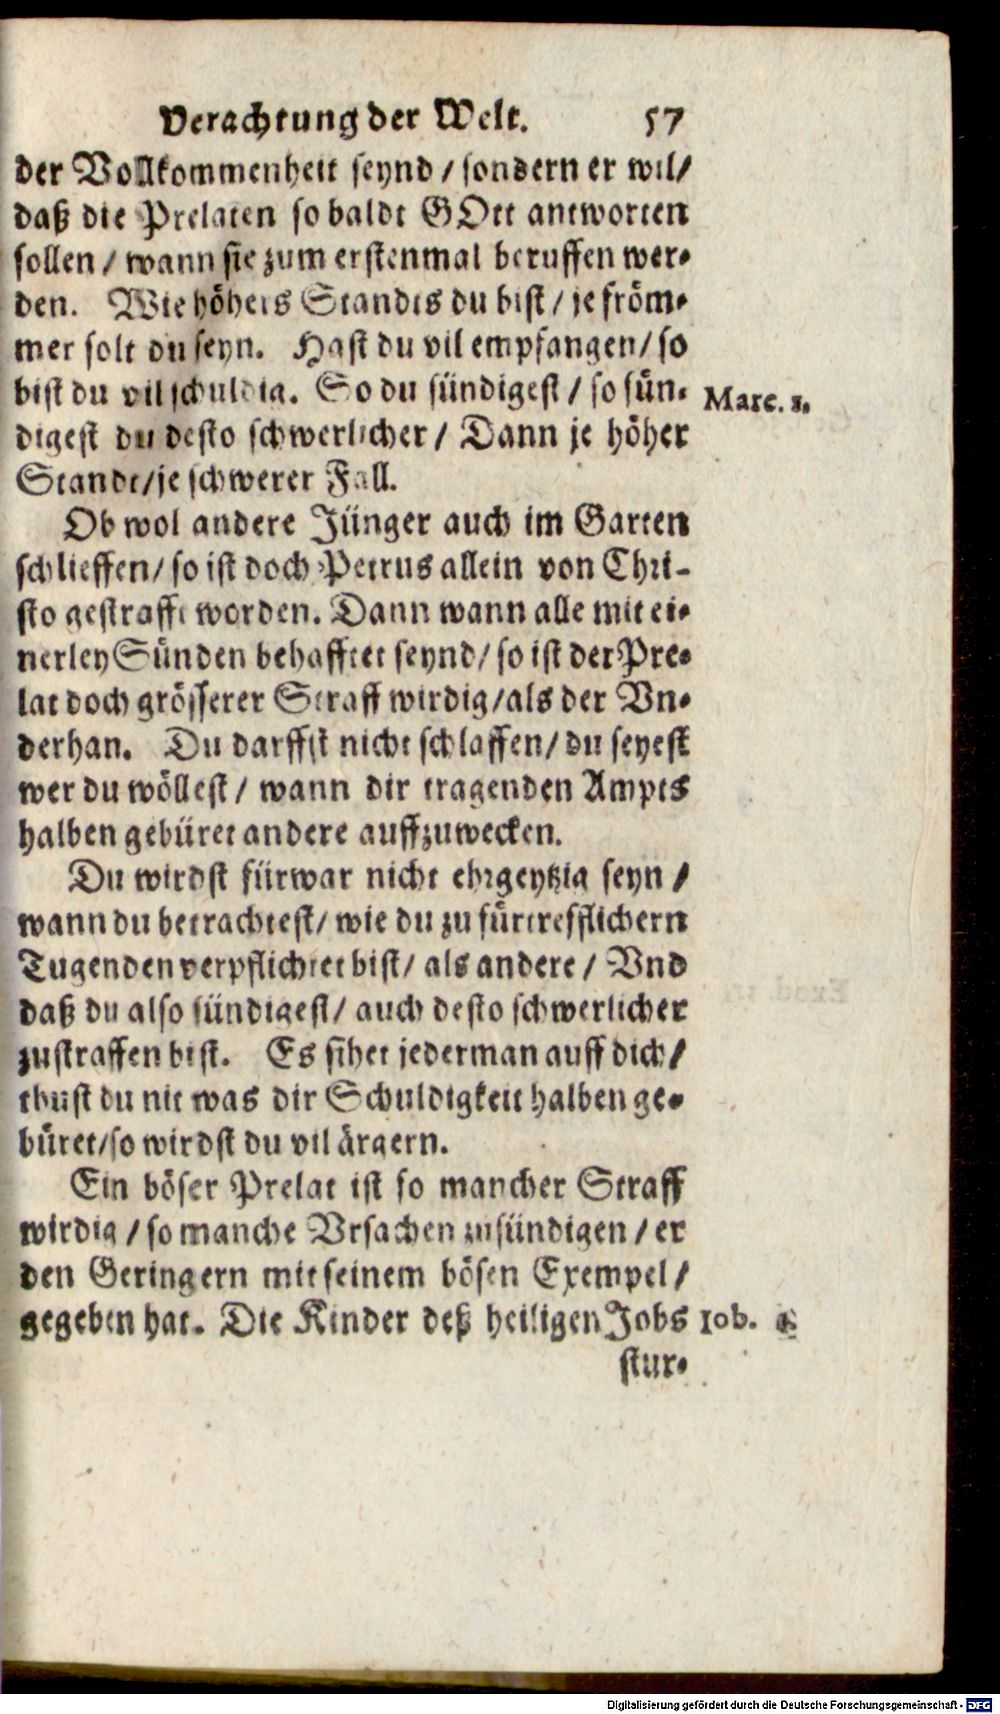 Verachtung der Welt. 57
der Vollkommenheit seynd / sondern er wil/
daß die Prelaten so baldt GOtt antworten
sollen / wann sie zum erstenmal beruffen wer-
den. Wie höhers Standts du bist / je fröm-
mer solt du seyn. Hast du vil empfangen/ so
bist du vil schuldig. So du sündigest / so sün-
Marc. 1.
digest du desto schwerlicher / Dann je höher
Standt/je schwerer Fall.
Ob wol andere Jünger auch im Garten
schlieffen/ so ist doch Petrus allein von Chri-
sto gestrafft worden. Dann wann alle mit ei-
nerley Sünden behafftet seynd/ so ist der Pre-
lat doch grösserer Straff wirdig/als der Vn-
derhan. Du darffst nicht schlaffen/ du seyest
wer du wöllest / wann dir tragenden Ampts
halben gebüret andere auffzuwecken.
Du wirdst fürwar nicht ehrgeytzig seyn /
wann du betrachtest/ wie du zu fürtrefflichern
Tugenden verpflichtet bist/ als andere / Vnd
daß du also sündigest/ auch desto schwerlicher
zustraffen bist. Es sihet jederman auff dich/
thust du nit was dir Schuldigkeit halben ge-
büret/so wirdst du vil ärgern.
Ein böser Prelat ist so mancher Straff
wirdig / so manche Vrsachen zusündigen / er
den Geringern mit seinem bösen Exempel /
gegeben hat. Die Kinder deß heiligen Jobs
Iob.
stur-
Digitalisierung gefördert durch die Deutsche Forschungsgemeinschaft - DFG